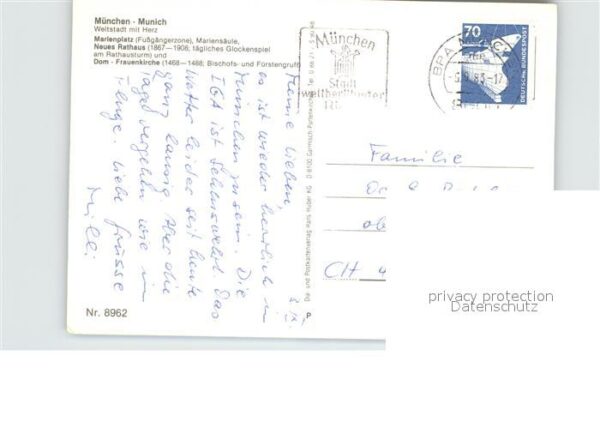 München - Munich
Weltstadt mit Herz
Marienplatz (Fußgängerzone), Mariensäule,
Neues Rathaus (1867—1908; tägliches Glockenspiel
am Rathausturm) und
Dom - Frauenkirche (1468—1488; Bischofs- und Fürstengruft)
München
Stadt
weltberühmter
70
DEUTSCHE BUNDESPOST
Meine Lieben,
es ist wieder herrlich in
München zu sein. Die
IGA ist Sehenswert. Das
Wetter leider seit heute
ganz launig. Aber die
Tage vergehen wie im
Fluge. Liebe Grüsse
Familie
CH
Nr. 8962
privacy protection
Datenschutz